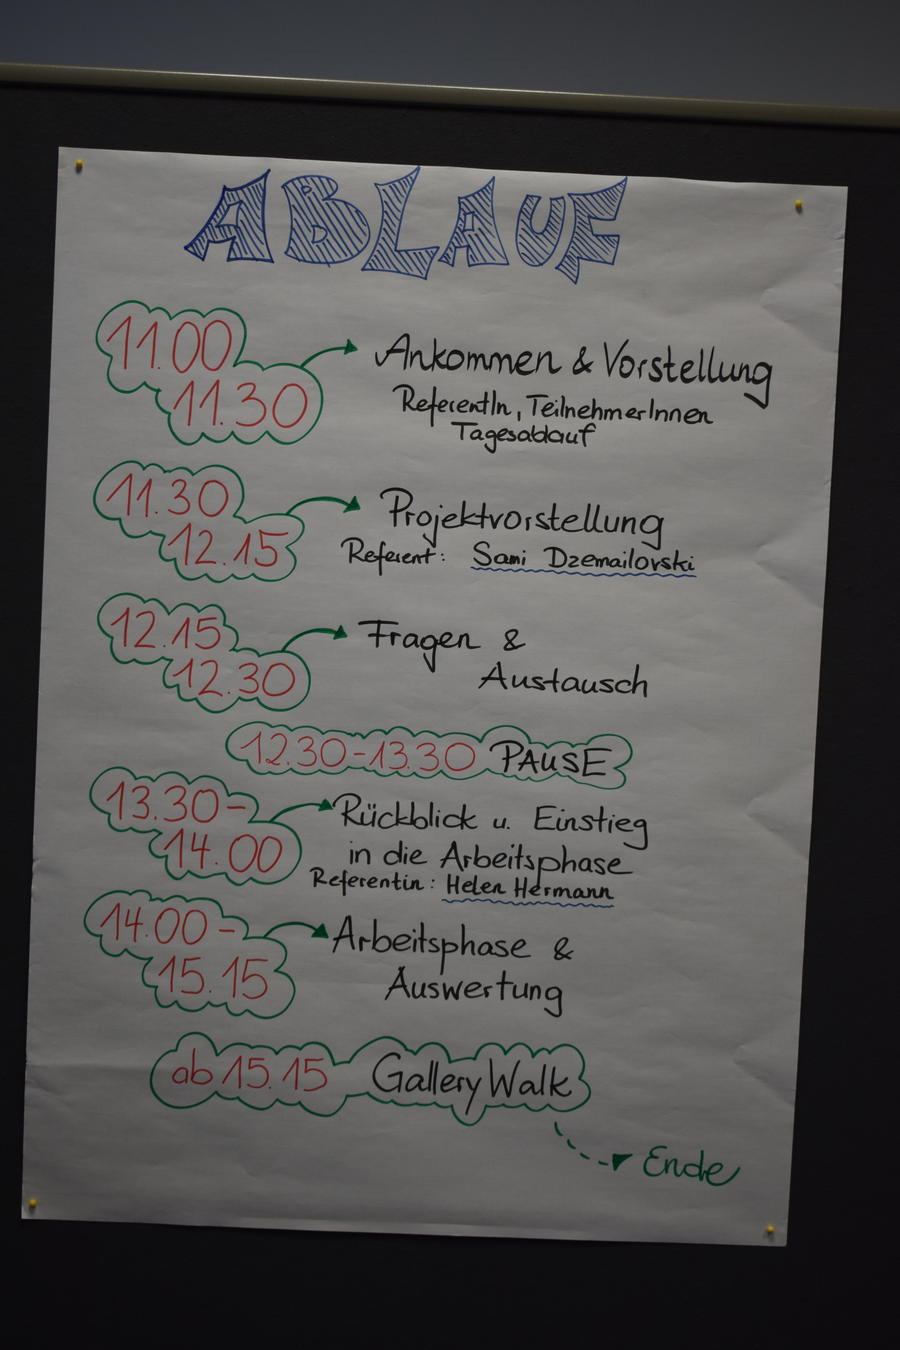 ABLAUF
11.00
11.30
Ankommen & Vorstellung
ReferentIn, TeilnehmerInnen
Tagesablauf
11.30
12.15
Projektvorstellung
Referent: Sami Dzemailovski
12.15
12.30
Fragen &
Austausch
12.30-13.30 PAUSE
13.30-
14.00
Rückblick u. Einstieg
in die Arbeitsphase
Referentin: Helen Hermann
14.00-
15.15
Arbeitsphase &
Auswertung
ab 15.15 Gallery Walk
Ende